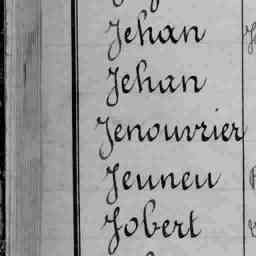 Jehan
Jehan
Jenouvrier
Jeuneu
Jobert